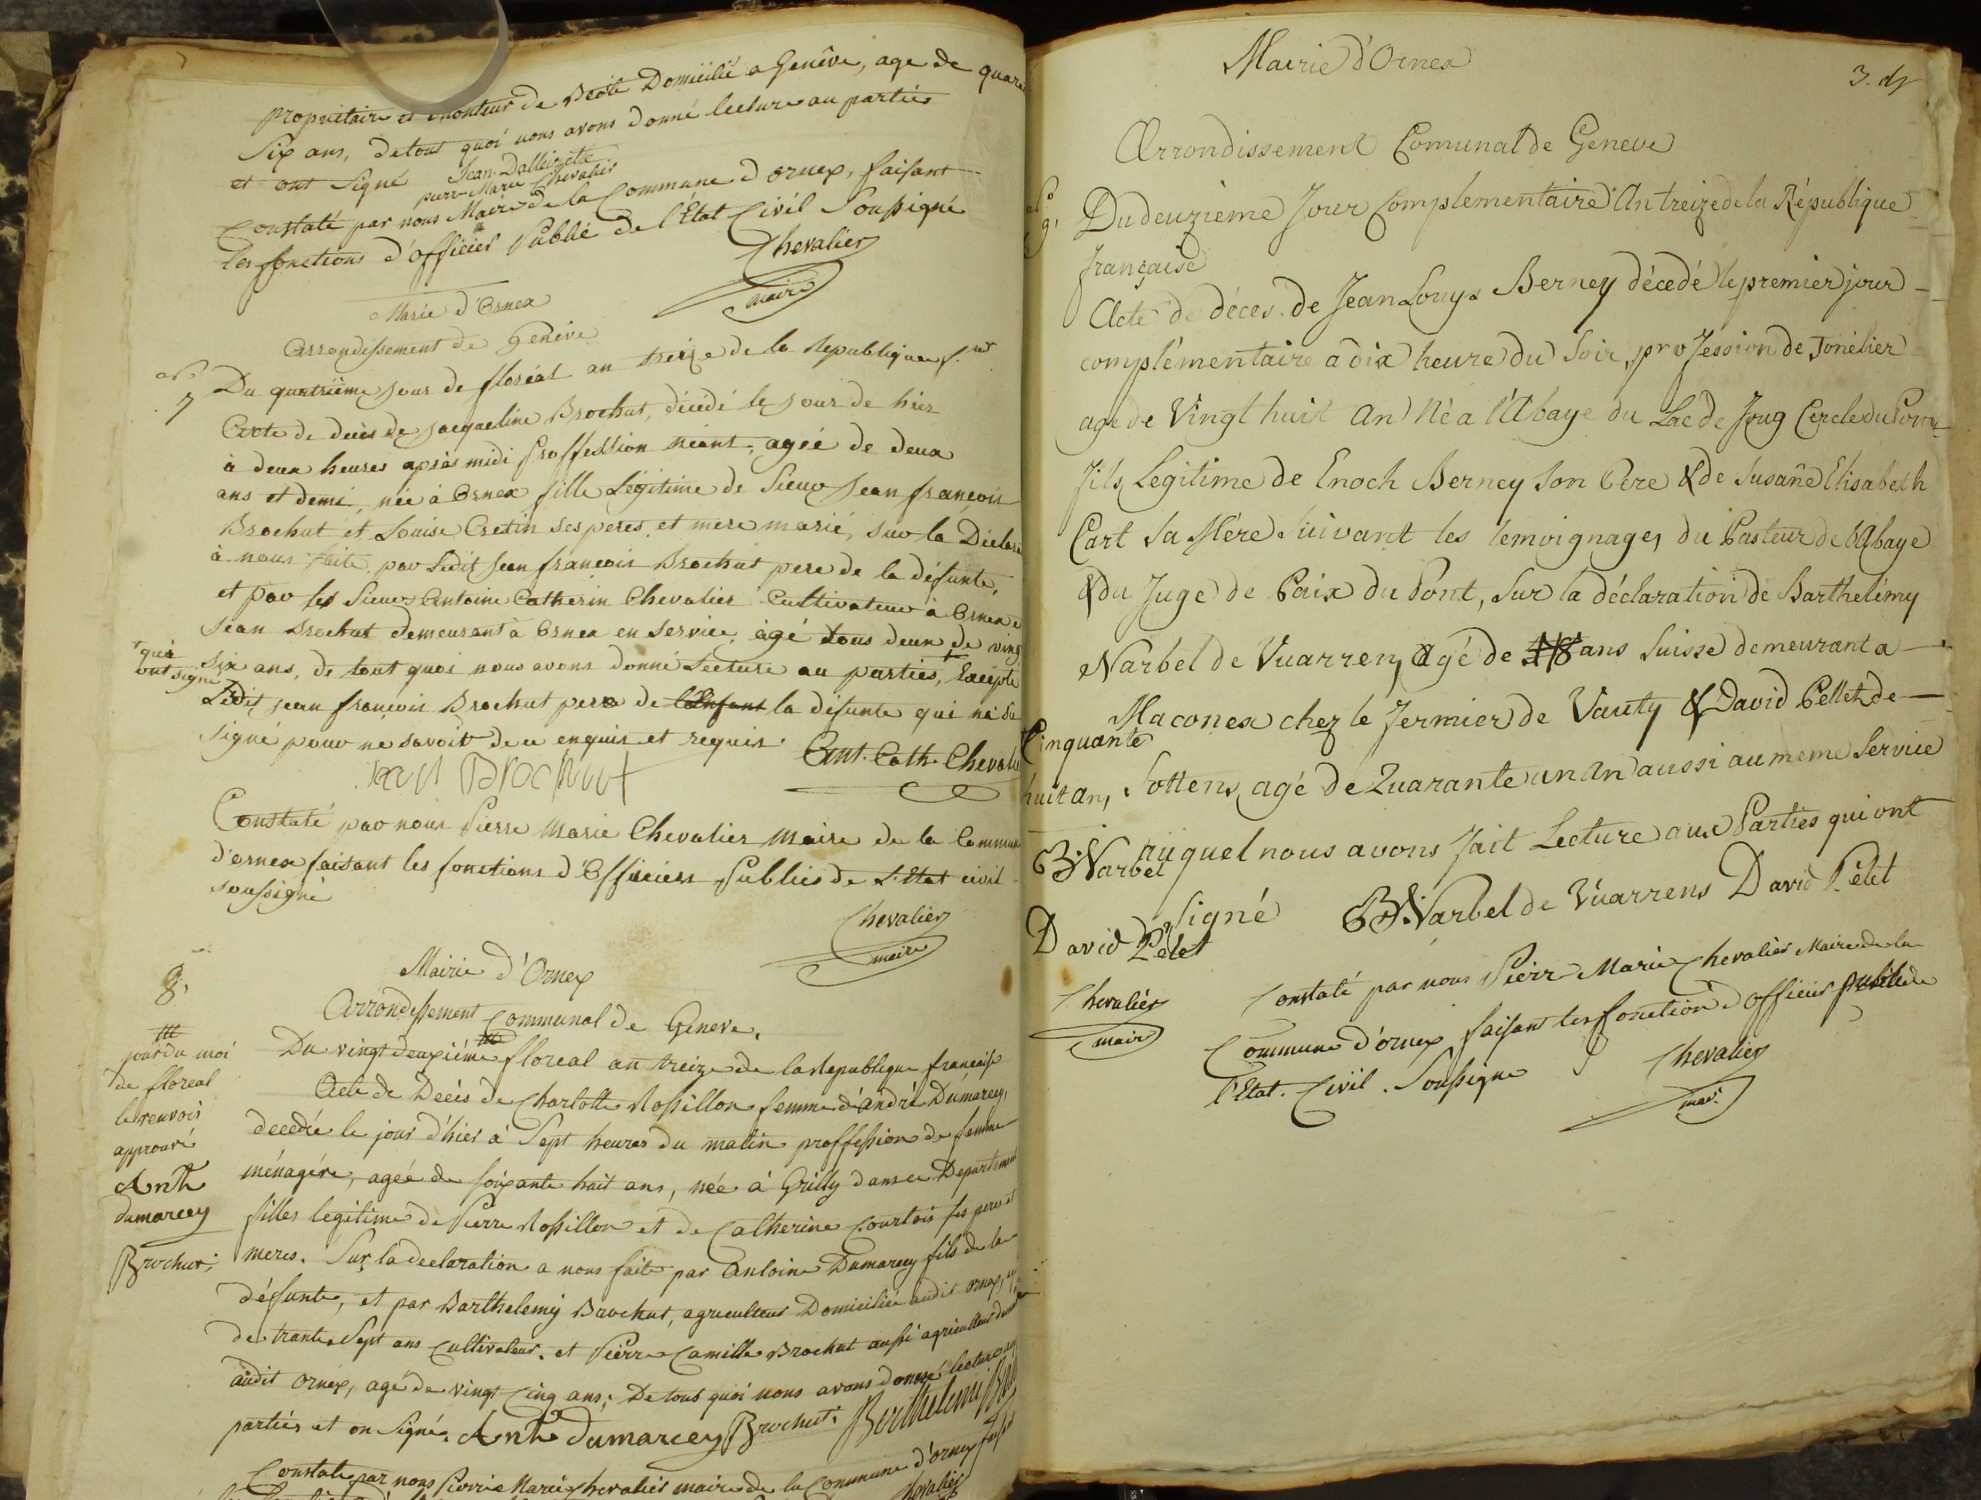 propriétaire et monteur de Boite Domicilié a Genêve, age de quara
Six ans, de tout quoi nous avons donné lecture au parties
et ont Signé Jean-Dallizette
pierr-Marie Chevalier
Constaté par nous Maire de la Commune d'ornex, faisant
les fonctions d'officier Public de l'Etat Civil Soussigné
Chevalier
maire
Marie d'Ornex
Arrondissement de Genêve
N°
7
Du quatriême jour de floréal an treize de la Republique f.se
Acte de décès de Jacqueline Brochut, décédé le jour de hier
à deux heures après midi Proffession néant, agée de deux
ans et demi, née à Ornex fille Légitime de Sieur Jean françois
Brochut et Louise Cretin ses peres et mere marié, sur la Déclara
à nous faite par Ledit Jean françois Brochut pere de la défunte,
et par les Sieurs Antoine Catherin Chevalier Cultivateur à Ornex e
Jean Brochut demeurant à Ornex en service, âgé tous deux de ving
+ qui
ont signé
six ans, de tout quoi nous avons donné Lecture au parties, + Exepté
Ledit Jean françois Brochut pere de l'Enfant la défunte qui n'a Su
signé pour ne savoir de ce enquis et requis.
Jean Brochut
Ant. Cath. Chevalie
Constaté par nous Pierre Marie Chevalier Maire de la Commune
d'ornex faisant les fonctions d'Officiers Publics de L'Etat civil
soussigné
Chevalier
maire
8.
Mairie d'Ornex
Arrondissement Communal de Geneve.
jour du moi
de floreal
le renvois
approuvé
Anth
dumarcey
Brochut
Du vingt deuxiéme floreal an treize de la Republique française
Acte de Decès de Charlotte Rossillon femme d'André Dumarcey,
decedée le jour d'hier à Sept heures du matin proffession de femme
ménagére, agée de soixante huit ans, née à Grilly dans ce Departement
filles legitime de Pierre Rossillon et de Catherine Courtois ses pere et
meres. Sur la declaration a nous faite par Antoine Dumarcey fils de la
défunte, et par Barthelemy Brochut, agriculteur Domiciliée audit ornex,
de trante Sept ans Cultivateur, et Pierre Camille Brochut aussi agriculteur
audit ornex, agé de vingt Cinq ans; De tout quoi nous avons donné lecture
parties et on Signé. Anth Dumarcey Brochut Berthelemi
Constaté par nous Pierre Marie Chevalier maire de la Commune d'ornex
Chevalier
Mairie d'Ornex
3.
Arrondissement Comunal de Geneve
9.
Du deuzieme Jour Complementaire An treize de la République
française
Acte de déces de Jean Louys Berney décedé le premier jour
complémentaire a dix heure du Soir, profession de Tonelier
age de Vingt huit an Né a l'Abaye du Lac de Joug Cercle du Pont
fils Legitime de Enoch Berney Son Père & de Susañe Elisabeth
Cart Sa Mère Suivant les temoignages du Pasteur de l'Abaye
& du Juge de Paix du Pont, Sur la déclaration de Barthelémy
Narbel de Vuarrens Agé de 48 ans Suisse demeurant a
Maconex chez le fermier de Vauty & David Pellet de
Cinquante
huit an,
Sottens, agé de Quarante un An aussi au meme Service
auquel nous avons fait Lecture aux Parties qui ont
B: Narbel
signé B: Narbel de Vuarrens David Pélet
David Pélet
Chevalier
maire
Constaté par nous Pierr Marie Chevalier Maire de la
Commune d'ornex faisant les fonction d'officier public de
l'Etat Civil Soussigne
Chevalier
mair.